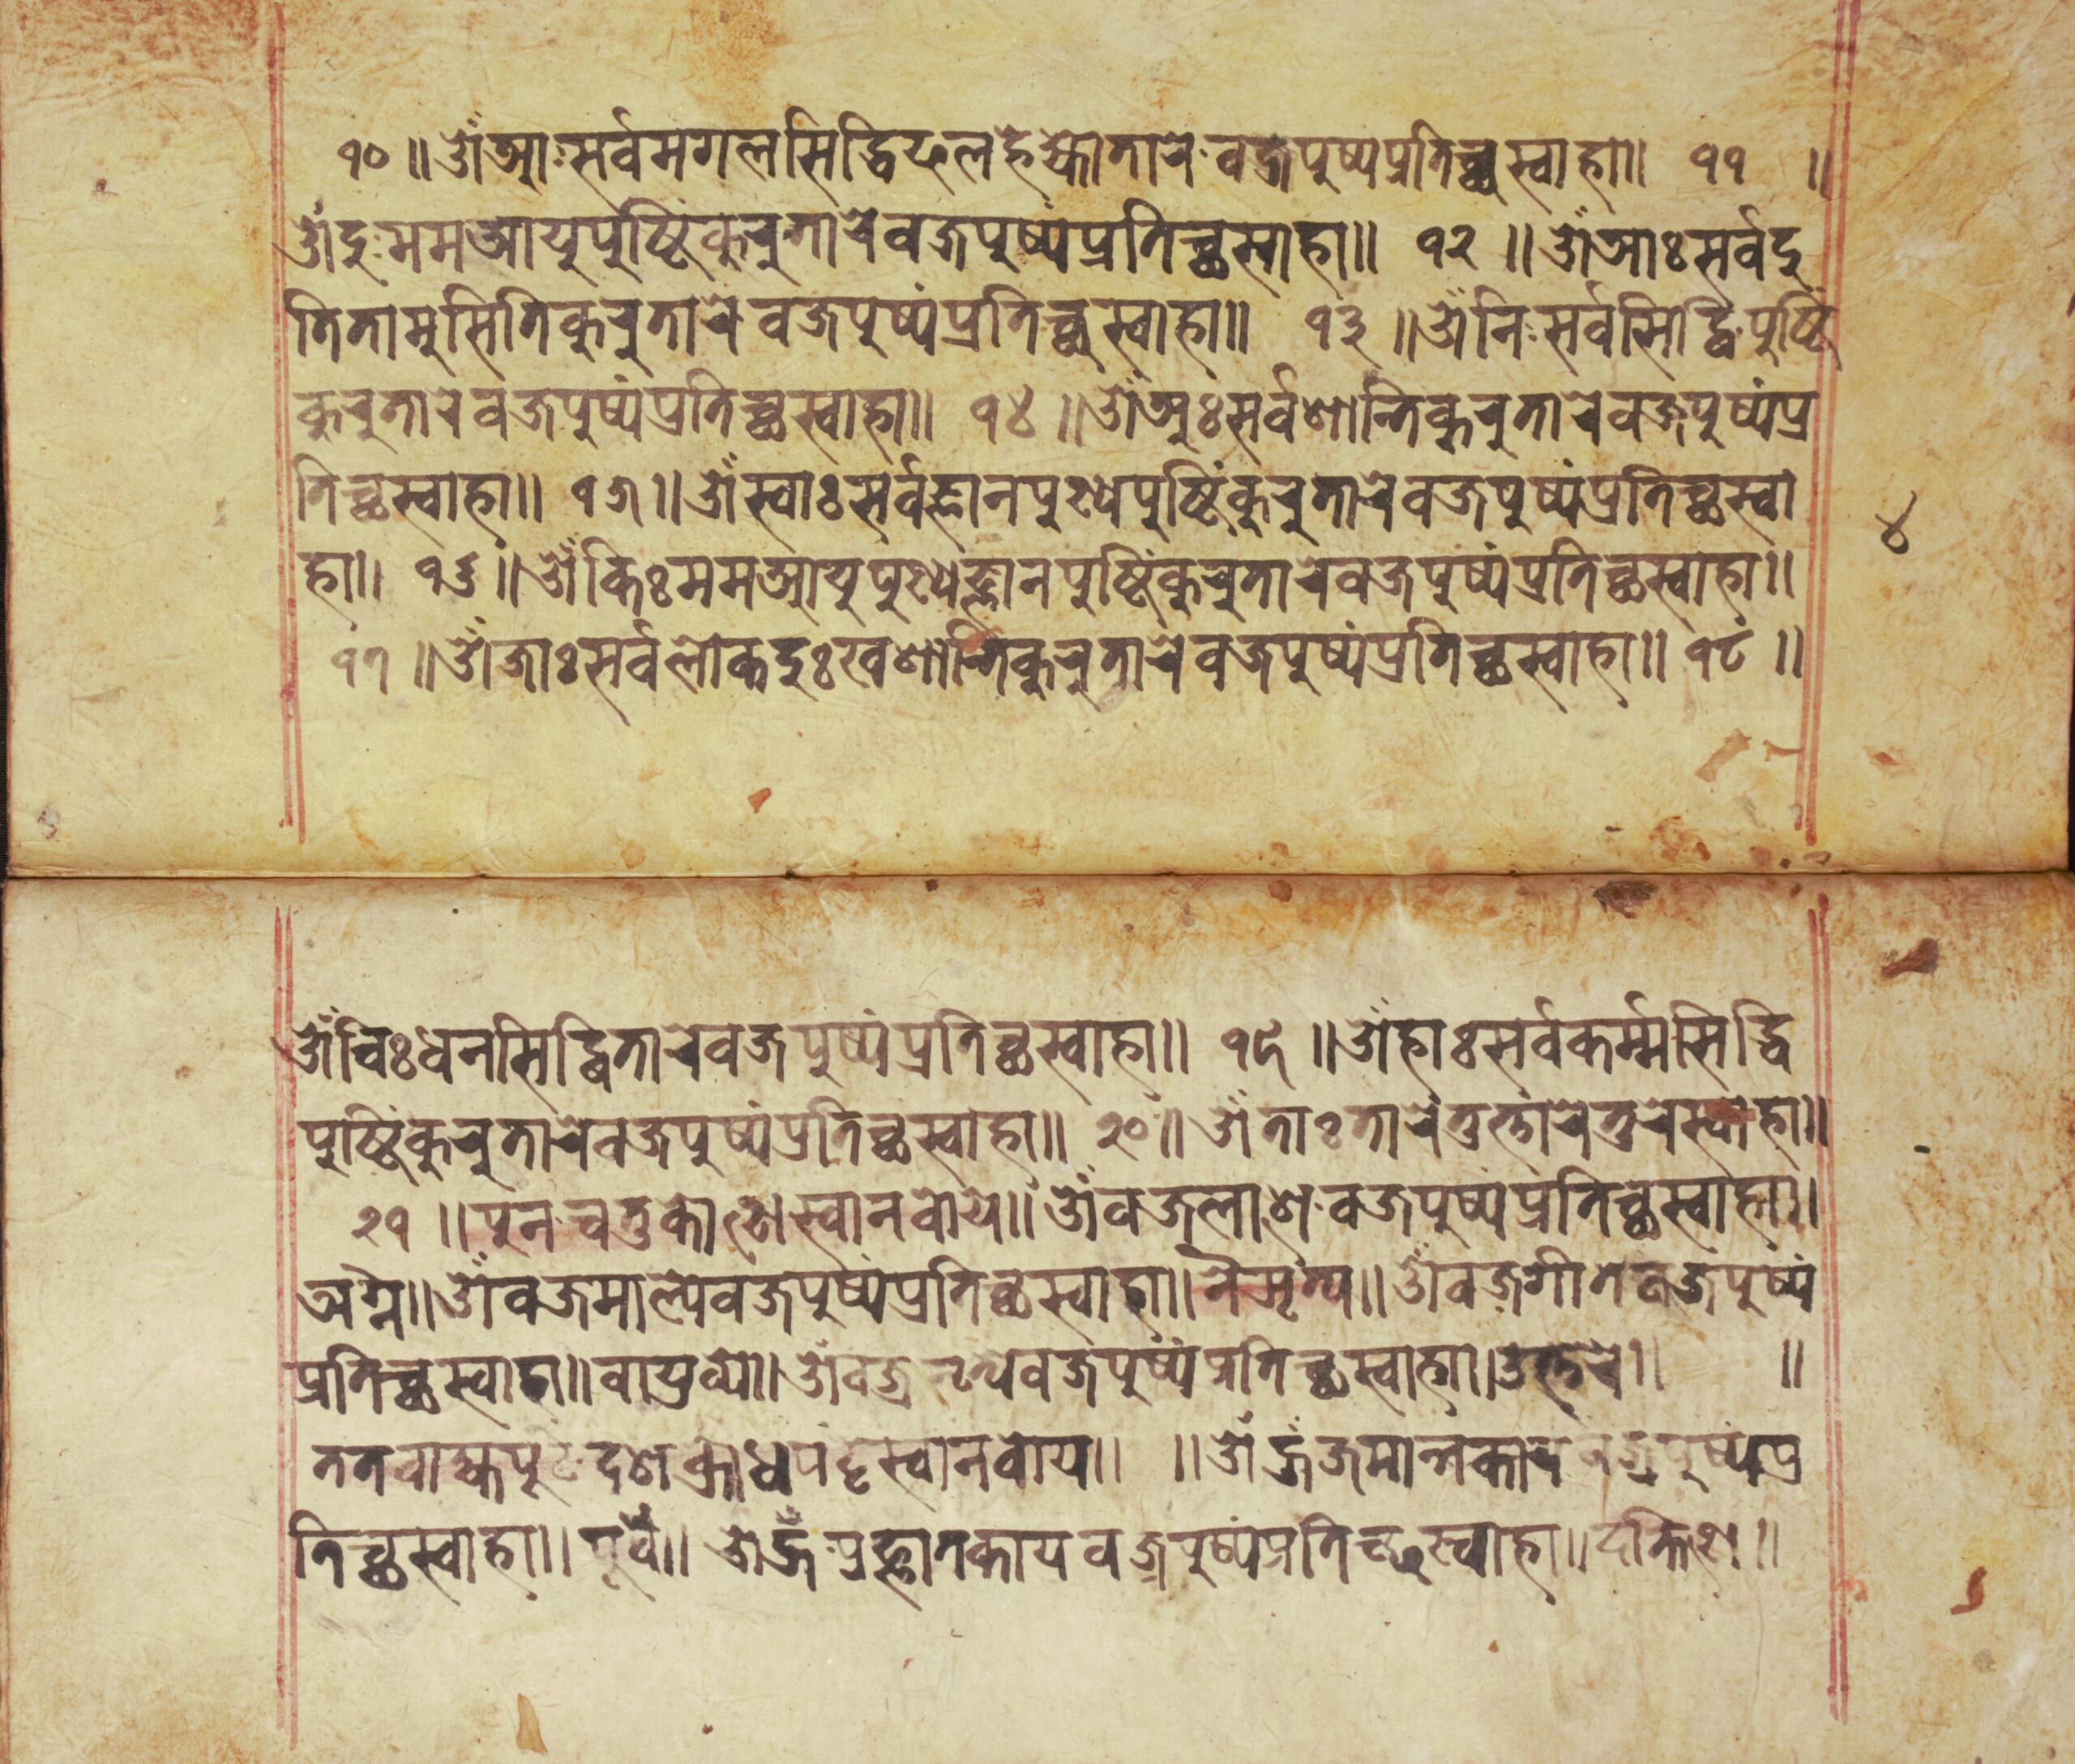 १० ॥ ओँ आः सर्वमगलसिद्धिफलहे तारे वज्रपुष्पप्रतिच्छस्वाहा ॥ ११ ॥
ओँ दुः ममआयुपुष्टिंकुरुतारेवज्रपुष्पंप्रतिच्छस्वाहा ॥ १२ ॥ ओँ आः सर्वदु
तितामुसितिकुरुतारे वज्रपुष्पंप्रतिच्छस्वाहा ॥ १३ ॥ ओँ निः सर्वसिद्धिपुष्टिं
कुरुतारेवज्रपुष्पंप्रतिच्छस्वाहा ॥ १४ ॥ ओँ अुः सर्वशान्तिकुरुतारेवज्रपुष्पंप्र
तिच्छस्वाहा ॥ १५ ॥ ओँ स्वाः सर्वज्ञानपुण्यपुष्टिंकुरुतारेवज्रपुष्पंप्रतिच्छस्वा
हा ॥ १६ ॥ ओँ किः ममआयुपुण्यज्ञानपुष्टिंकुरुतारेवज्रपुष्पंप्रतिच्छस्वाहा ॥
४
१७ ॥ ओँ जाः सर्वलोकदुःखशान्तिकुरुतारेवज्रपुष्पंप्रतिच्छस्वाहा ॥ १८ ॥
ओँ चिः धनसिद्धितारेवज्रपुष्पंप्रतिच्छस्वाहा ॥ १९ ॥ ओँ हाः सर्वकर्म्मसिद्धि
पुष्टिंकुरुतारेवज्रपुष्पंप्रतिच्छस्वाहा ॥ २० ॥ ओँ ताः तारेतुत्तारेतुरेस्वाहा ॥
२१ ॥ पुन चतुकोणस्वानबोये ॥ ओँ वज्रलाशे वज्रपुष्पंप्रतिच्छस्वाहा ॥
अग्नै ॥ ओँ वज्रमाल्येवज्रपुष्पंप्रतिच्छस्वाहा ॥ नैऋत्य ॥ ओँ वज्रगीतेवज्रपुष्पं
प्रतिच्छस्वाहा ॥ वायुव्ये ॥ ओँ वज्रनृत्येवज्रपुष्पंप्रतिच्छस्वाहा ॥ उत्तरे ॥ ॥
तत दशक्रोध स्वानबोय ॥ ॥ ओँ ह्रूँ जमान्तकाय वज्रपुष्पंप्र
तिच्छस्वाहा ॥ पूर्वे ॥ ओँ ह्रूँ प्रज्ञातकाय वज्रपुष्पंप्रतिच्छस्वाहा ॥ दक्षिण ॥